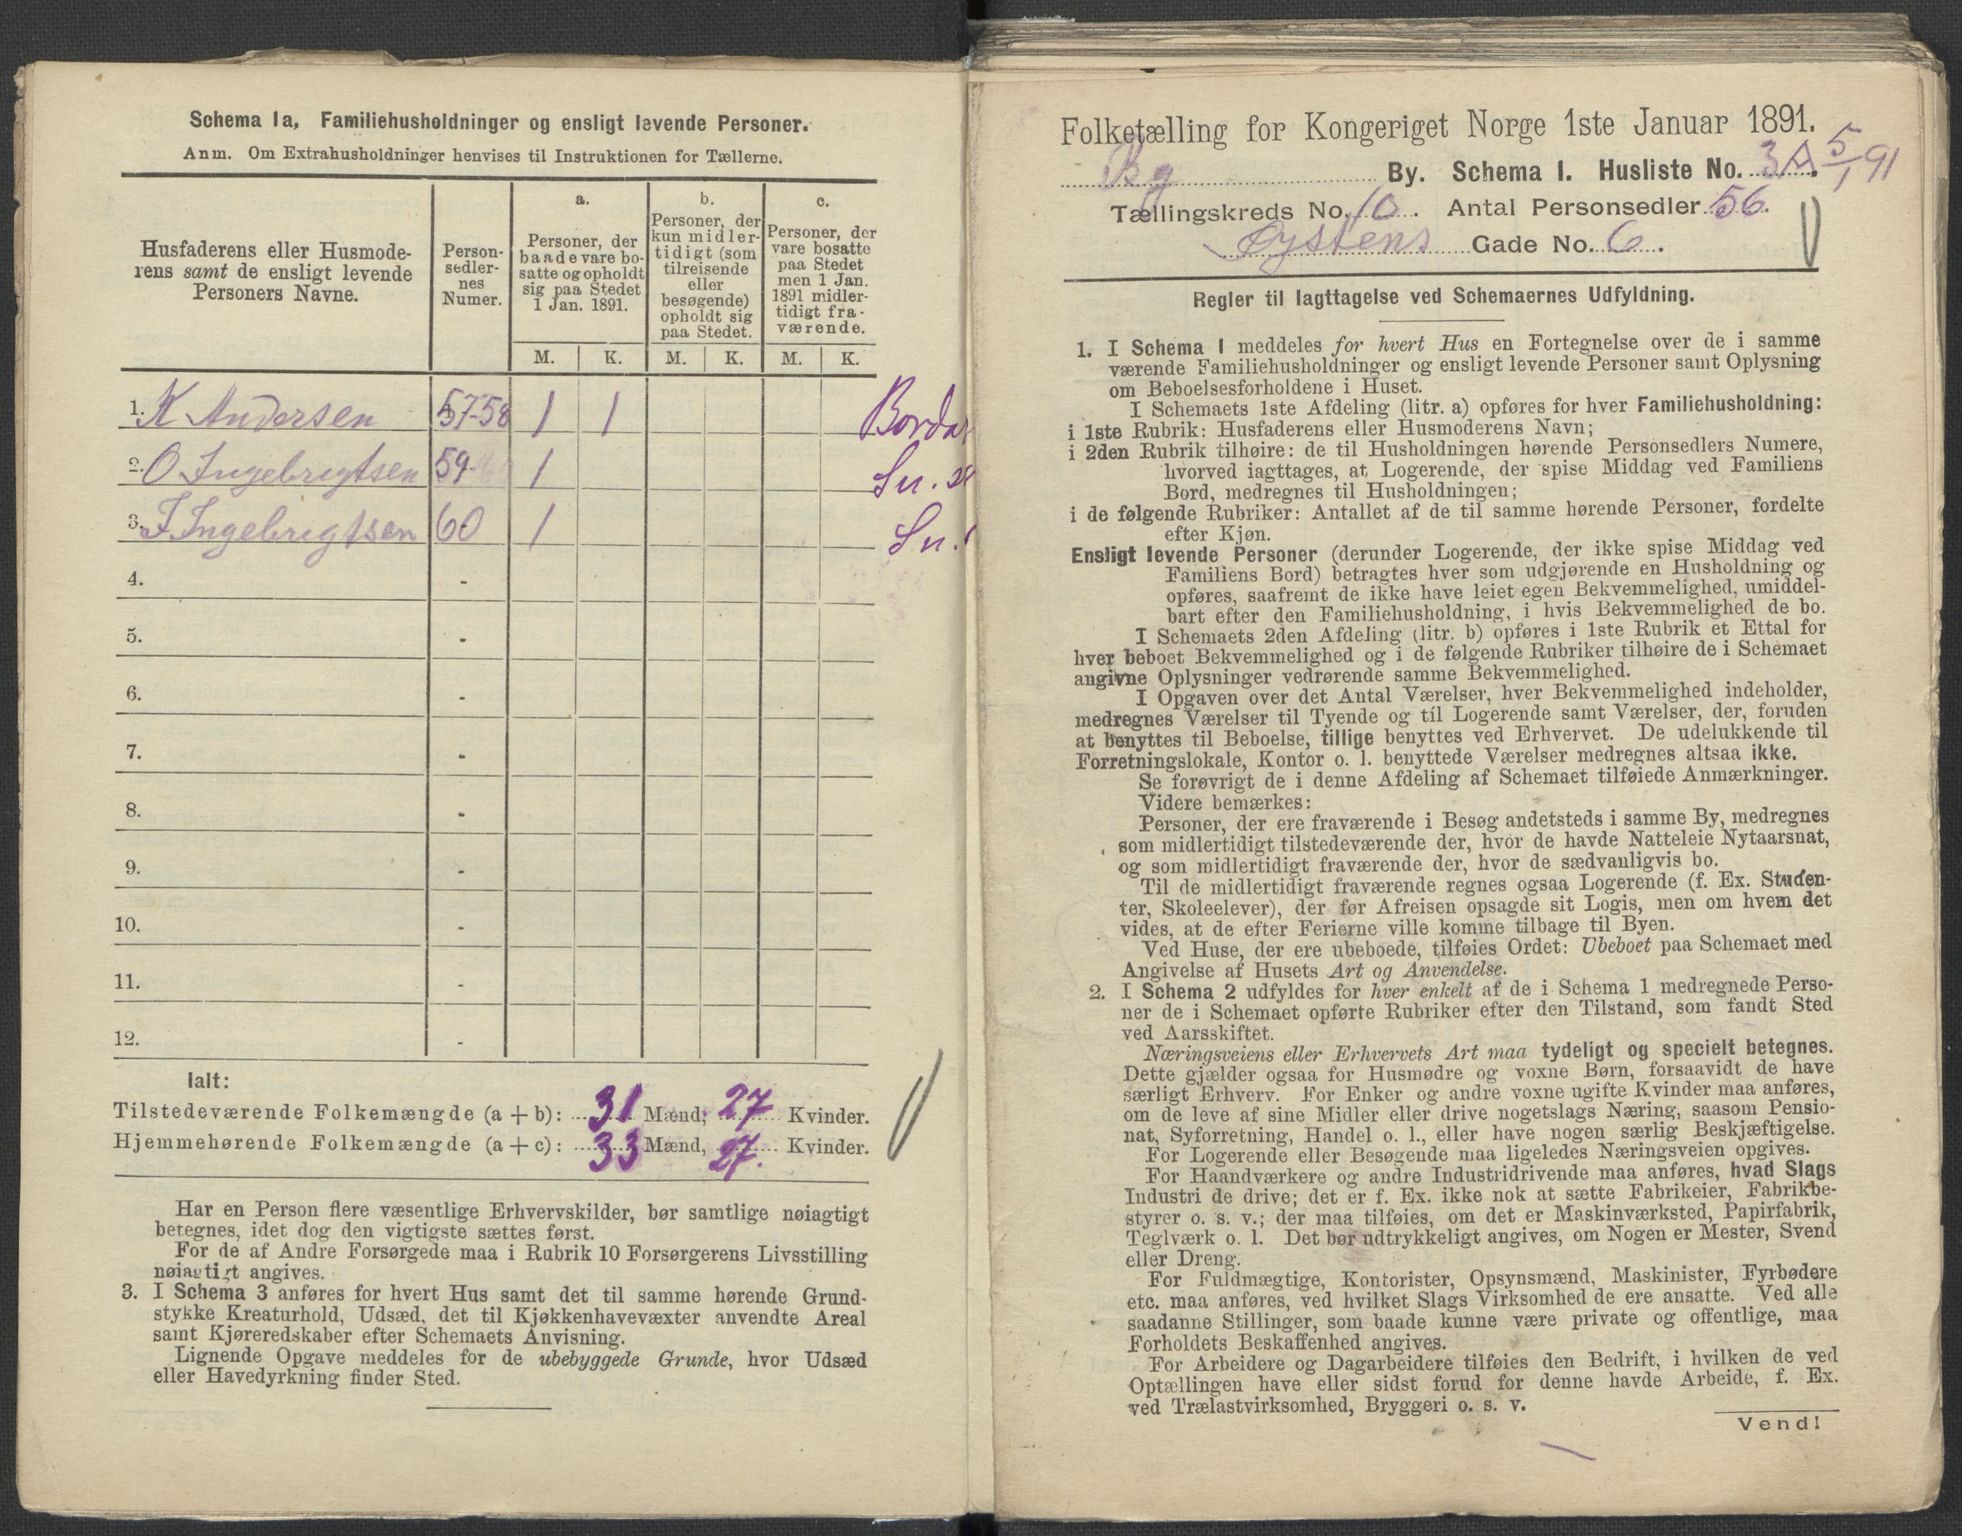 Schema 1a, Familiehusholdninger og ensligt levende Personer.
Anm. Om Extrahusholdninger henvises til Instruktionen for Tællerne.
Husfaderens eller Husmode-
rens samt de ensligt levende
Personers Navne.
Person-
sedler-
nes
Numer.
a.
Personer, der
baade vare bo-
satte og opholdt
sig paa Stedet
1 Jan. 1891.
b.
Personer, der
kun midler-
tidigt (som
tilreisende
eller
besøgende)
opholdt sig
paa Stedet.
c.
Personer, der
vare bosatte
paa Stedet
men 1 Jan.
1891 midler-
tidigt fra-
værende.
M. K. M. K. M. K.
1. K Andersen 57-58 1 1
2. O Ingebrigtsen 59- 1
3. I Ingebrigtsen 60 1
4. -
5. -
6. -
7. -
8. -
9. -
10. -
11. -
12. -
Ialt:
Tilstedeværende Folkemængde (a + b): 31 Mænd; 27 Kvinder.
Hjemmehørende Folkemængde (a + c): 33 Mænd, 27. Kvinder.
Har en Person flere væsentlige Erhvervskilder, bør samtlige nøiagtigt
betegnes, idet dog den vigtigste sættes først.
For de af Andre Forsørgede maa i Rubrik 10 Forsørgerens Livsstilling
nøiagtigt angives.
3. I Schema 3 anføres for hvert Hus samt det til samme hørende Grund-
stykke Kreaturhold, Udsæd, det til Kjøkkenhavevæxter anvendte Areal
samt Kjøreredskaber efter Schemaets Anvisning.
Lignende Opgave meddeles for de ubebyggede Grunde, hvor Udsæd
eller Havedyrkning finder Sted.
Folketælling for Kongeriget Norge 1ste Januar 1891.
By. Schema 1. Husliste No. 3A. 5/1 91
Tællingskreds No. 10. Antal Personsedler 56.
Øystens Gade No. 6.
Regler til Iagttagelse ved Schemaernes Udfyldning.
1. I Schema 1 meddeles for hvert Hus en Fortegnelse over de i samme
værende Familiehusholdninger og ensligt levende Personer samt Oplysning
om Beboelsesforholdene i Huset.
I Schemaets 1ste Afdeling (litr. a) opføres for hver Familiehusholdning:
i 1ste Rubrik: Husfaderens eller Husmoderens Navn;
i 2den Rubrik tilhøire: de til Husholdningen hørende Personsedlers Numere,
hvorved iagttages, at Logerende, der spise Middag ved Familiens
Bord, medregnes til Husholdningen;
i de følgende Rubriker: Antallet af de til samme hørende Personer, fordelte
efter Kjøn.
Ensligt levende Personer (derunder Logerende, der ikke spise Middag ved
Familiens Bord) betragtes hver som udgjørende en Husholdning og
opføres, saafremt de ikke have leiet egen Bekvemmelighed, umiddel-
bart efter den Familiehusholdning, i hvis Bekvemmelighed de bo.
I Schemaets 2den Afdeling (litr. b) opføres i 1ste Rubrik et Ettal for
hver beboet Bekvemmelighed og i de følgende Rubriker tilhøire de i Schemaet
angivne Oplysninger vedrørende samme Bekvemmelighed.
I Opgaven over det Antal Værelser, hver Bekvemmelighed indeholder,
medregnes Værelser til Tyende og til Logerende samt Værelser, der, foruden
at benyttes til Beboelse, tillige benyttes ved Erhvervet. De udelukkende til
Forretningslokale, Kontor o. l. benyttede Værelser medregnes altsaa ikke.
Se forøvrigt de i denne Afdeling af Schemaet tilføiede Anmærkninger.
Videre bemærkes:
Personer, der ere fraværende i Besøg andetsteds i samme By, medregnes
som midlertidigt tilstedeværende der, hvor de havde Natteleie Nytaarsnat,
og som midlertidigt fraværende der, hvor de sædvanligvis bo.
Til de midlertidigt fraværende regnes ogsaa Logerende (f. Ex. Studen-
ter, Skoleelever), der før Afreisen opsagde sit Logis, men om hvem det
vides, at de efter Ferierne ville komme tilbage til Byen.
Ved Huse, der ere ubeboede, tilføies Ordet: Ubeboet paa Schemaet med
Angivelse af Husets Art og Anvendelse.
2. I Schema 2 udfyldes for hver enkelt af de i Schema 1 medregnede Perso-
ner de i Schemaet opførte Rubriker efter den Tilstand, som fandt Sted
ved Aarsskiftet.
Næringsveiens eller Erhvervets Art maa tydeligt og specielt betegnes.
Dette gjælder ogsaa for Husmødre og voxne Børn, forsaavidt de have
særligt Erhverv. For Enker og andre voxne ugifte Kvinder maa anføres,
om de leve af sine Midler eller drive nogetslags Næring, saasom Pensio-
nat, Syforretning, Handel o. l., eller have nogen særlig Beskjæftigelse.
For Logerende eller Besøgende maa ligeledes Næringsveien opgives.
For Haandværkere og andre Industridrivende maa anføres, hvad Slags
Industri de drive; det er f. Ex. ikke nok at sætte Fabrikeier, Fabrikbe-
styrer o. s. v.; der maa tilføies, om det er Maskinværksted, Papirfabrik,
Teglværk o. l. Det bør udtrykkeligt angives, om Nogen er Mester, Svend
eller Dreng.
For Fuldmægtige, Kontorister, Opsynsmænd, Maskinister, Fyrbødere
etc. maa anføres, ved hvilket Slags Virksomhed de ere ansatte. Ved alle
saadanne Stillinger, som baade kunne være private og offentlige, maa
Forholdets Beskaffenhed angives.
For Arbeidere og Dagarbeidere tilføies den Bedrift, i hvilken de ved
Optællingen have eller sidst forud for denne havde Arbeide, f. Ex.
ved Trælastvirksomhed, Bryggeri o. s. v.
Vend!